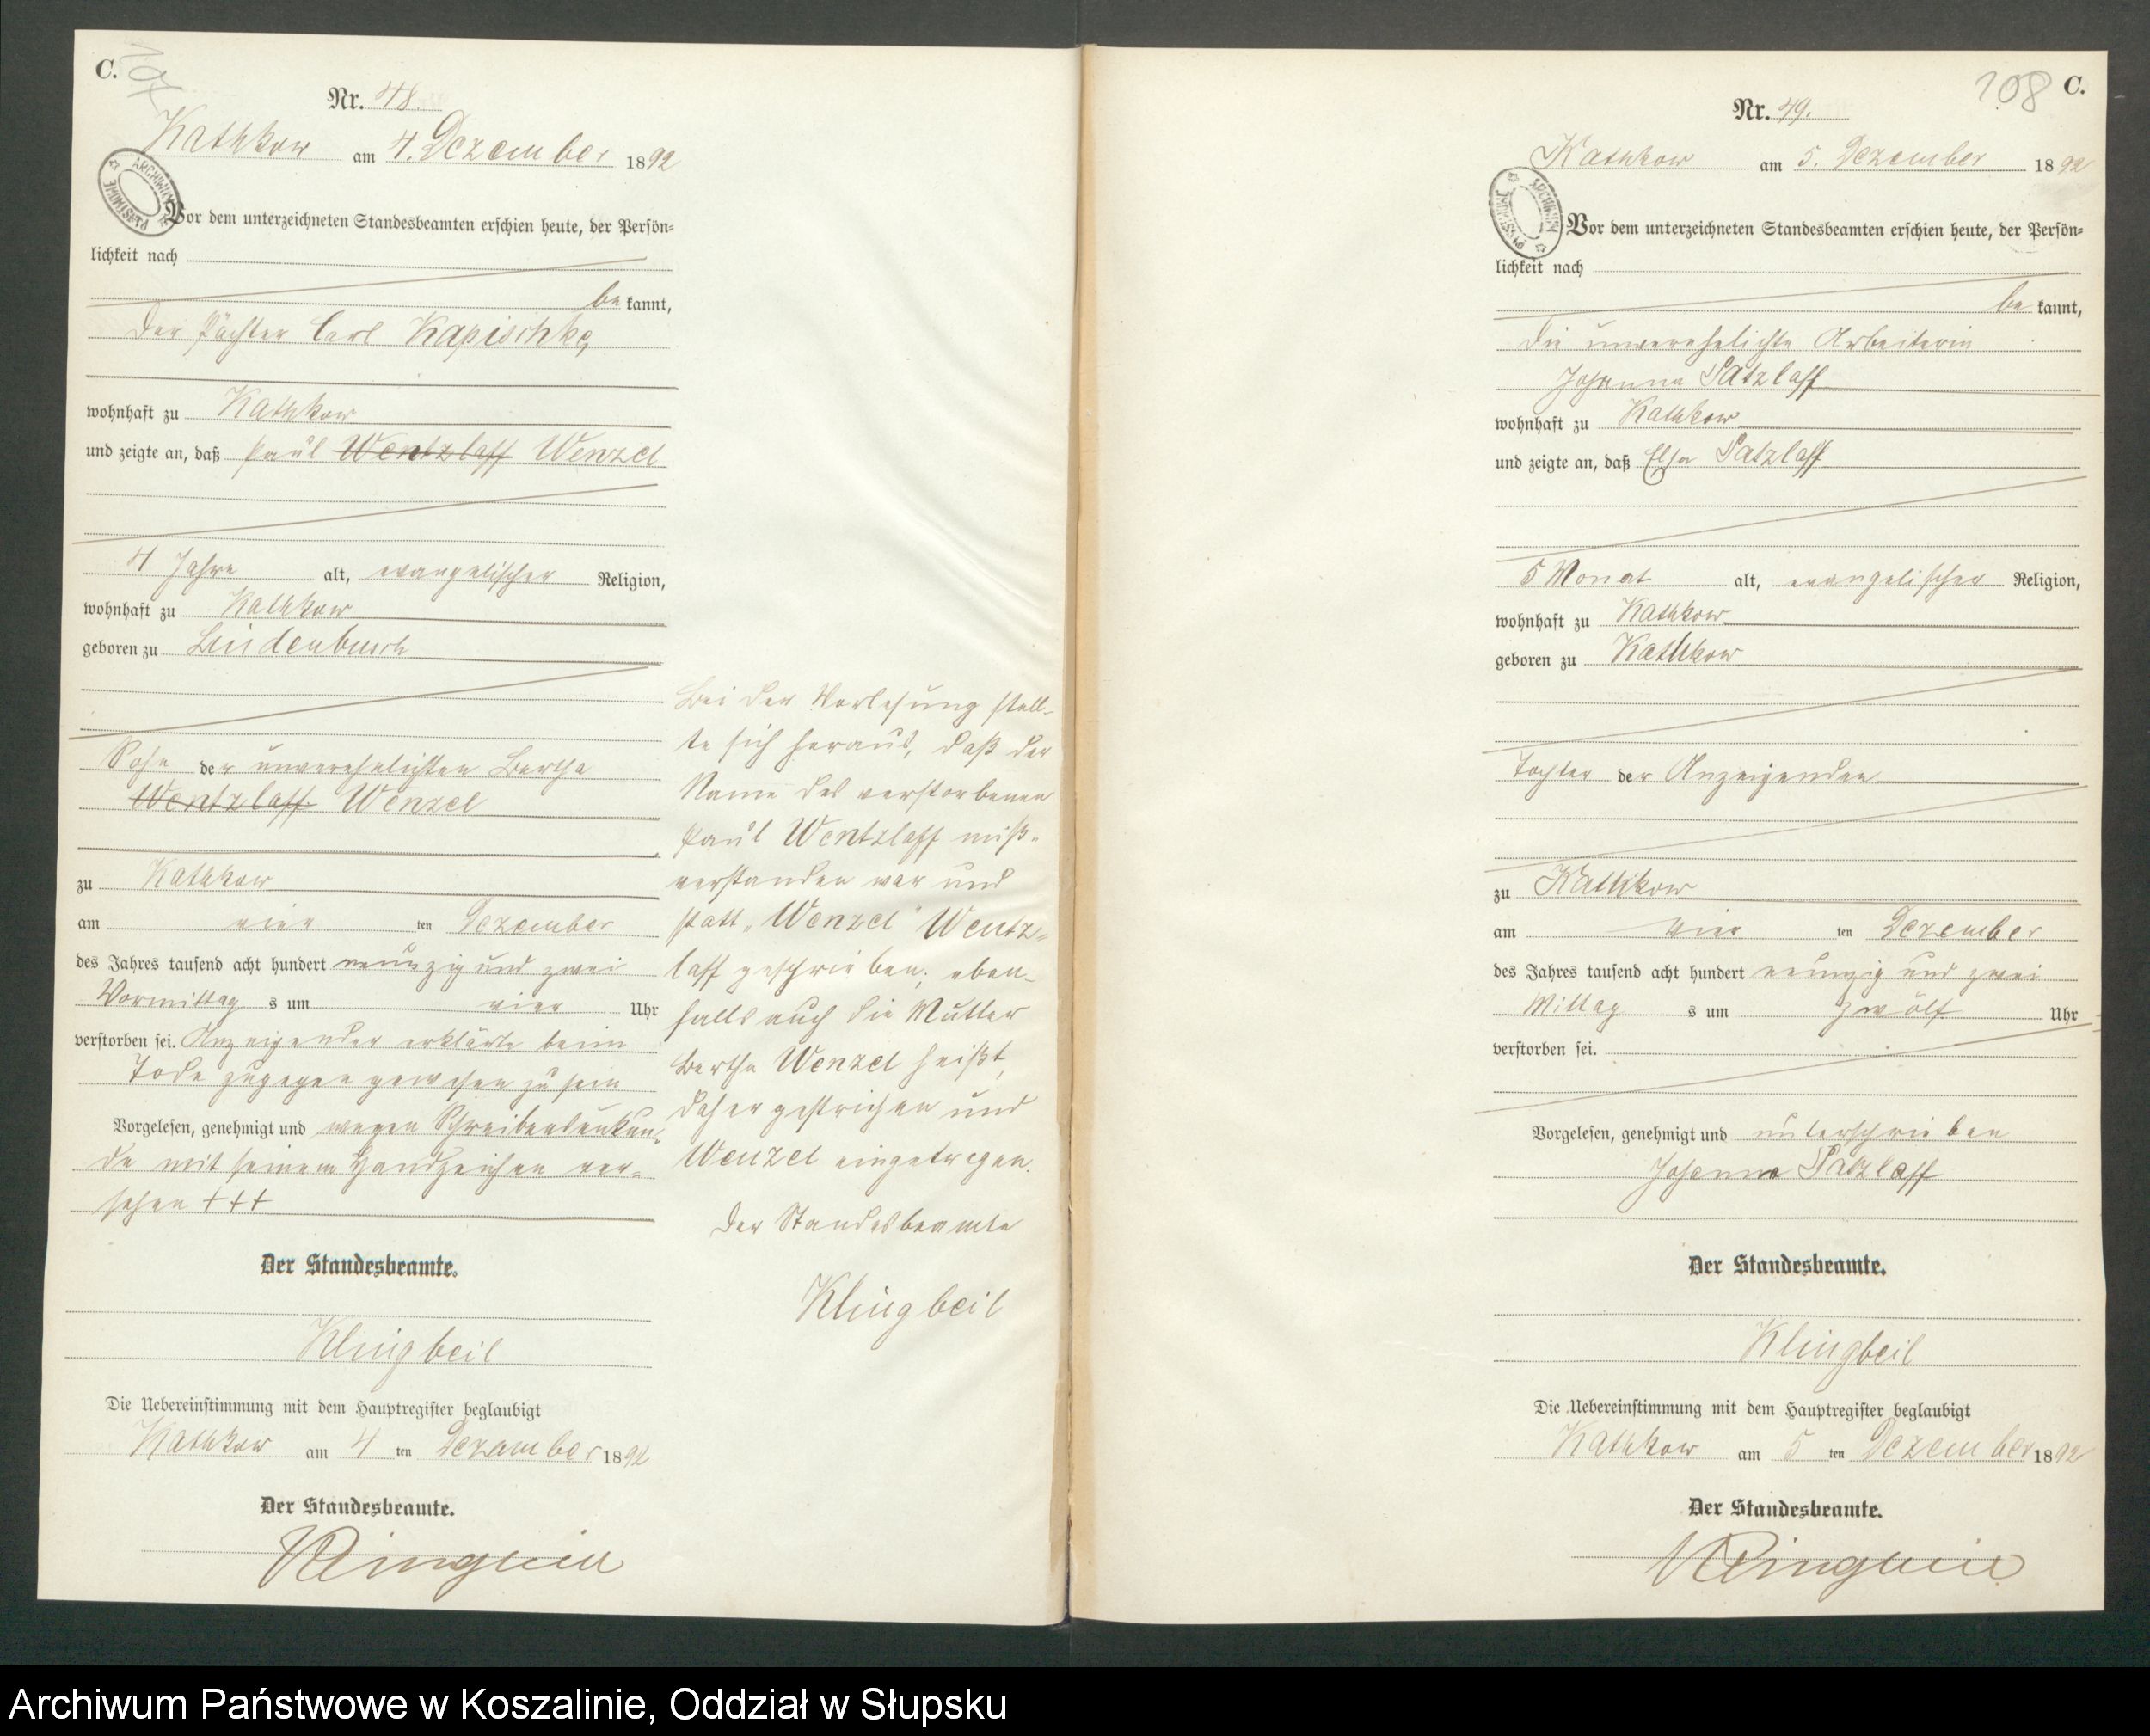 C.
107
Nr. 48.
Kathkow am 4. Dezember 1892
Vor dem unterzeichneten Standesbeamten erschien heute, der Persön=
lichkeit nach
be kannt,
der Pächter Carl Kapischke,
wohnhaft zu Kathkow
und zeigte an, daß Paul Wentzlaff Wenzel
4 Jahre alt, evangelischer Religion,
wohnhaft zu Kathkow
geboren zu Lindenbusch
Sohn der unverehelichten Bertha
Wentzlaff Wenzel
zu Kathkow
am vier ten Dezember
des Jahres tausend acht hundert neunzig und zwei
Vormittag s um vier Uhr
verstorben sei. Anzeigender erklärte beim
Tode zugegen gewesen zu sein
Vorgelesen, genehmigt und wegen Schreibensunkun-
de mit seinem Handzeichen ver-
sehen +++
Der Standesbeamte.
Klingbeil
Die Uebereinstimmung mit dem Hauptregister beglaubigt
Kathkow am 4 ten Dezember 1892
Der Standesbeamte.
Klingbeil
Bei der Vorlesung stell-
te sich heraus, daß der
Name des verstorbenen
Paul Wentzlaff miß-
verstanden war und
statt „Wenzel" Wentz-
laff geschrieben; eben-
falls auch die Mutter
Bertha Wenzel heißt,
daher gestrichen und
Wenzel eingetragen.
Der Standesbeamte
Klingbeil
108 C.
Nr. 49.
Kathkow am 5. Dezember 1892
Vor dem unterzeichneten Standesbeamten erschien heute, der Persön=
lichkeit nach
be kannt,
die unverehelichte Arbeiterin
Johanna Patzlaff
wohnhaft zu Kathkow
und zeigte an, daß Elsa Patzlaff
5 Monat alt, evangelischer Religion,
wohnhaft zu Kathkow
geboren zu Kathkow
Tochter der Anzeigenden
zu Kathkow
am vier ten Dezember
des Jahres tausend acht hundert neunzig und zwei
Mittag s um zwölf Uhr
verstorben sei.
Vorgelesen, genehmigt und unterschrieben
Johanna Patzlaff
Der Standesbeamte.
Klingbeil
Die Uebereinstimmung mit dem Hauptregister beglaubigt
Kathkow am 5 ten Dezember 1892
Der Standesbeamte.
Klingbeil
Archiwum Państwowe w Koszalinie, Oddział w Słupsku